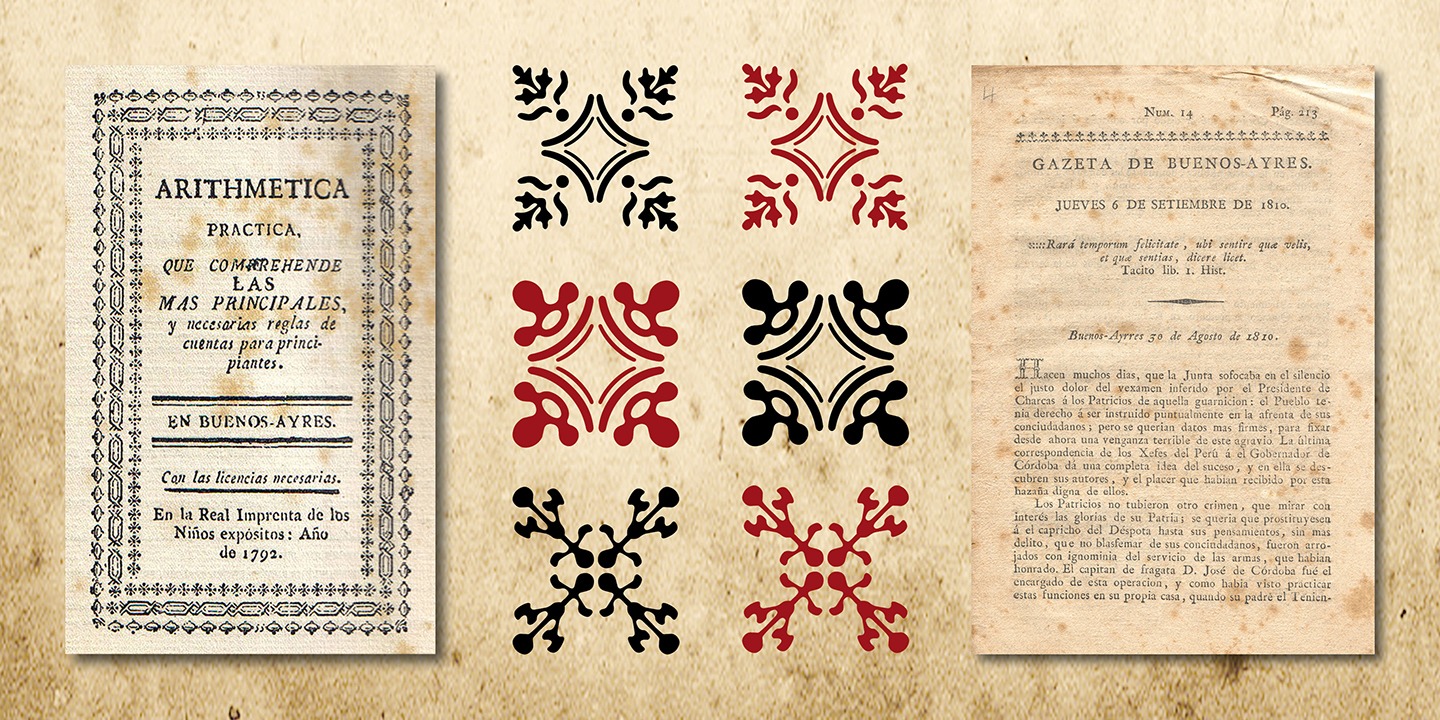 ARITHMETICA
PRACTICA,
QUE COMPREHENDE
LAS
MAS PRINCIPALES,
y necesarias reglas de
cuentas para princi-
piantes.
EN BUENOS-AYRES.
Con las licencias necesarias.
En la Real Imprenta de los
Niños expósitos: Año
de 1792.
4
Num. 14 Pág. 213
GAZETA DE BUENOS-AYRES.
JUEVES 6 DE SETIEMBRE DE 1810.
:::::Rará temporum felicitate , ubi sentire quæ velis,
et quæ sentias, dicere licet.
Tacito lib. 1. Hist.
Buenos-Ayrres 30 de Agosto de 1810.
Hacen muchos dias, que la Junta sofocaba en el silencio
el justo dolor del vexamen inferido por el Presidente de
Charcas á los Patricios de aquella guarnicion: el Pueblo te-
nia derecho á ser instruido puntualmente en la afrenta de sus
conciudadanos; pero se querian datos mas firmes, para fixar
desde ahora una venganza terrible de este agravio La última
correspondencia de los Xefes del Perú á el Gobernador de
Córdoba dá una completa idea del suceso, y en ella se des-
cubren sus autores, y el placer que habian recibido por esta
hazaña digna de ellos.
Los Patricios no tubieron otro crimen, que mirar con
interés las glorias de su Patria; se queria que prostituyesen
á el capricho del Déspota hasta sus pensamientos, sin mas
delito, que no blasfemar de sus conciudadanos, fueron arro-
jados con ignominia del servicio de las armas, que habian
honrado. El capitan de fragata D. José de Córdoba fué el
encargado de esta operacion, y como habia visto practicar
estas funciones en su propia casa, quando su padre el Tenien-